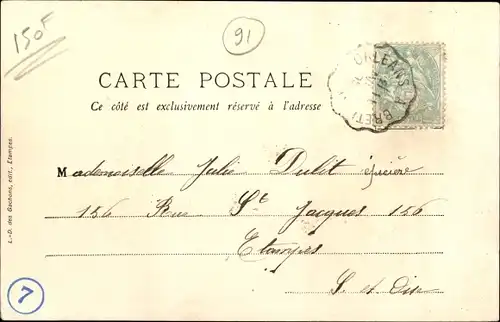 150F
91
ORLEANS A BRETI
CARTE POSTALE
Ce côté est exclusivement réservé à l'adresse
Mademoiselle Julie Dulit épicière
156 Rue St Jacques 156
Etampes
S. et Oise
L.-D. des Gachons, édit., Etampes.
7